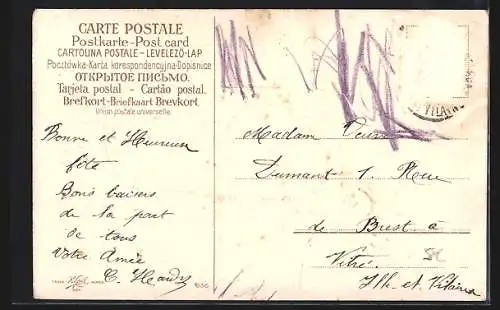 CARTE POSTALE
Postkarte - Post card
CARTOLINA POSTALE - LEVELEZŐ-LAP
Pocztówka - Karta korespondencyjna - Dopisnice
ОТКРЫТОЕ ПИСЬМО.
Tarjeta postal - Cartão postal.
Brefkort - Briefkaart Brevkort
Union postale universelle.
Bonne et Heureuse
fête
Bons baisers
de la part
de tous
Votre Amie
C. Hardy
Madame Veuve
Dumant 1. Rue
de Brest à
Vitré.
Ille. et. Vilaine